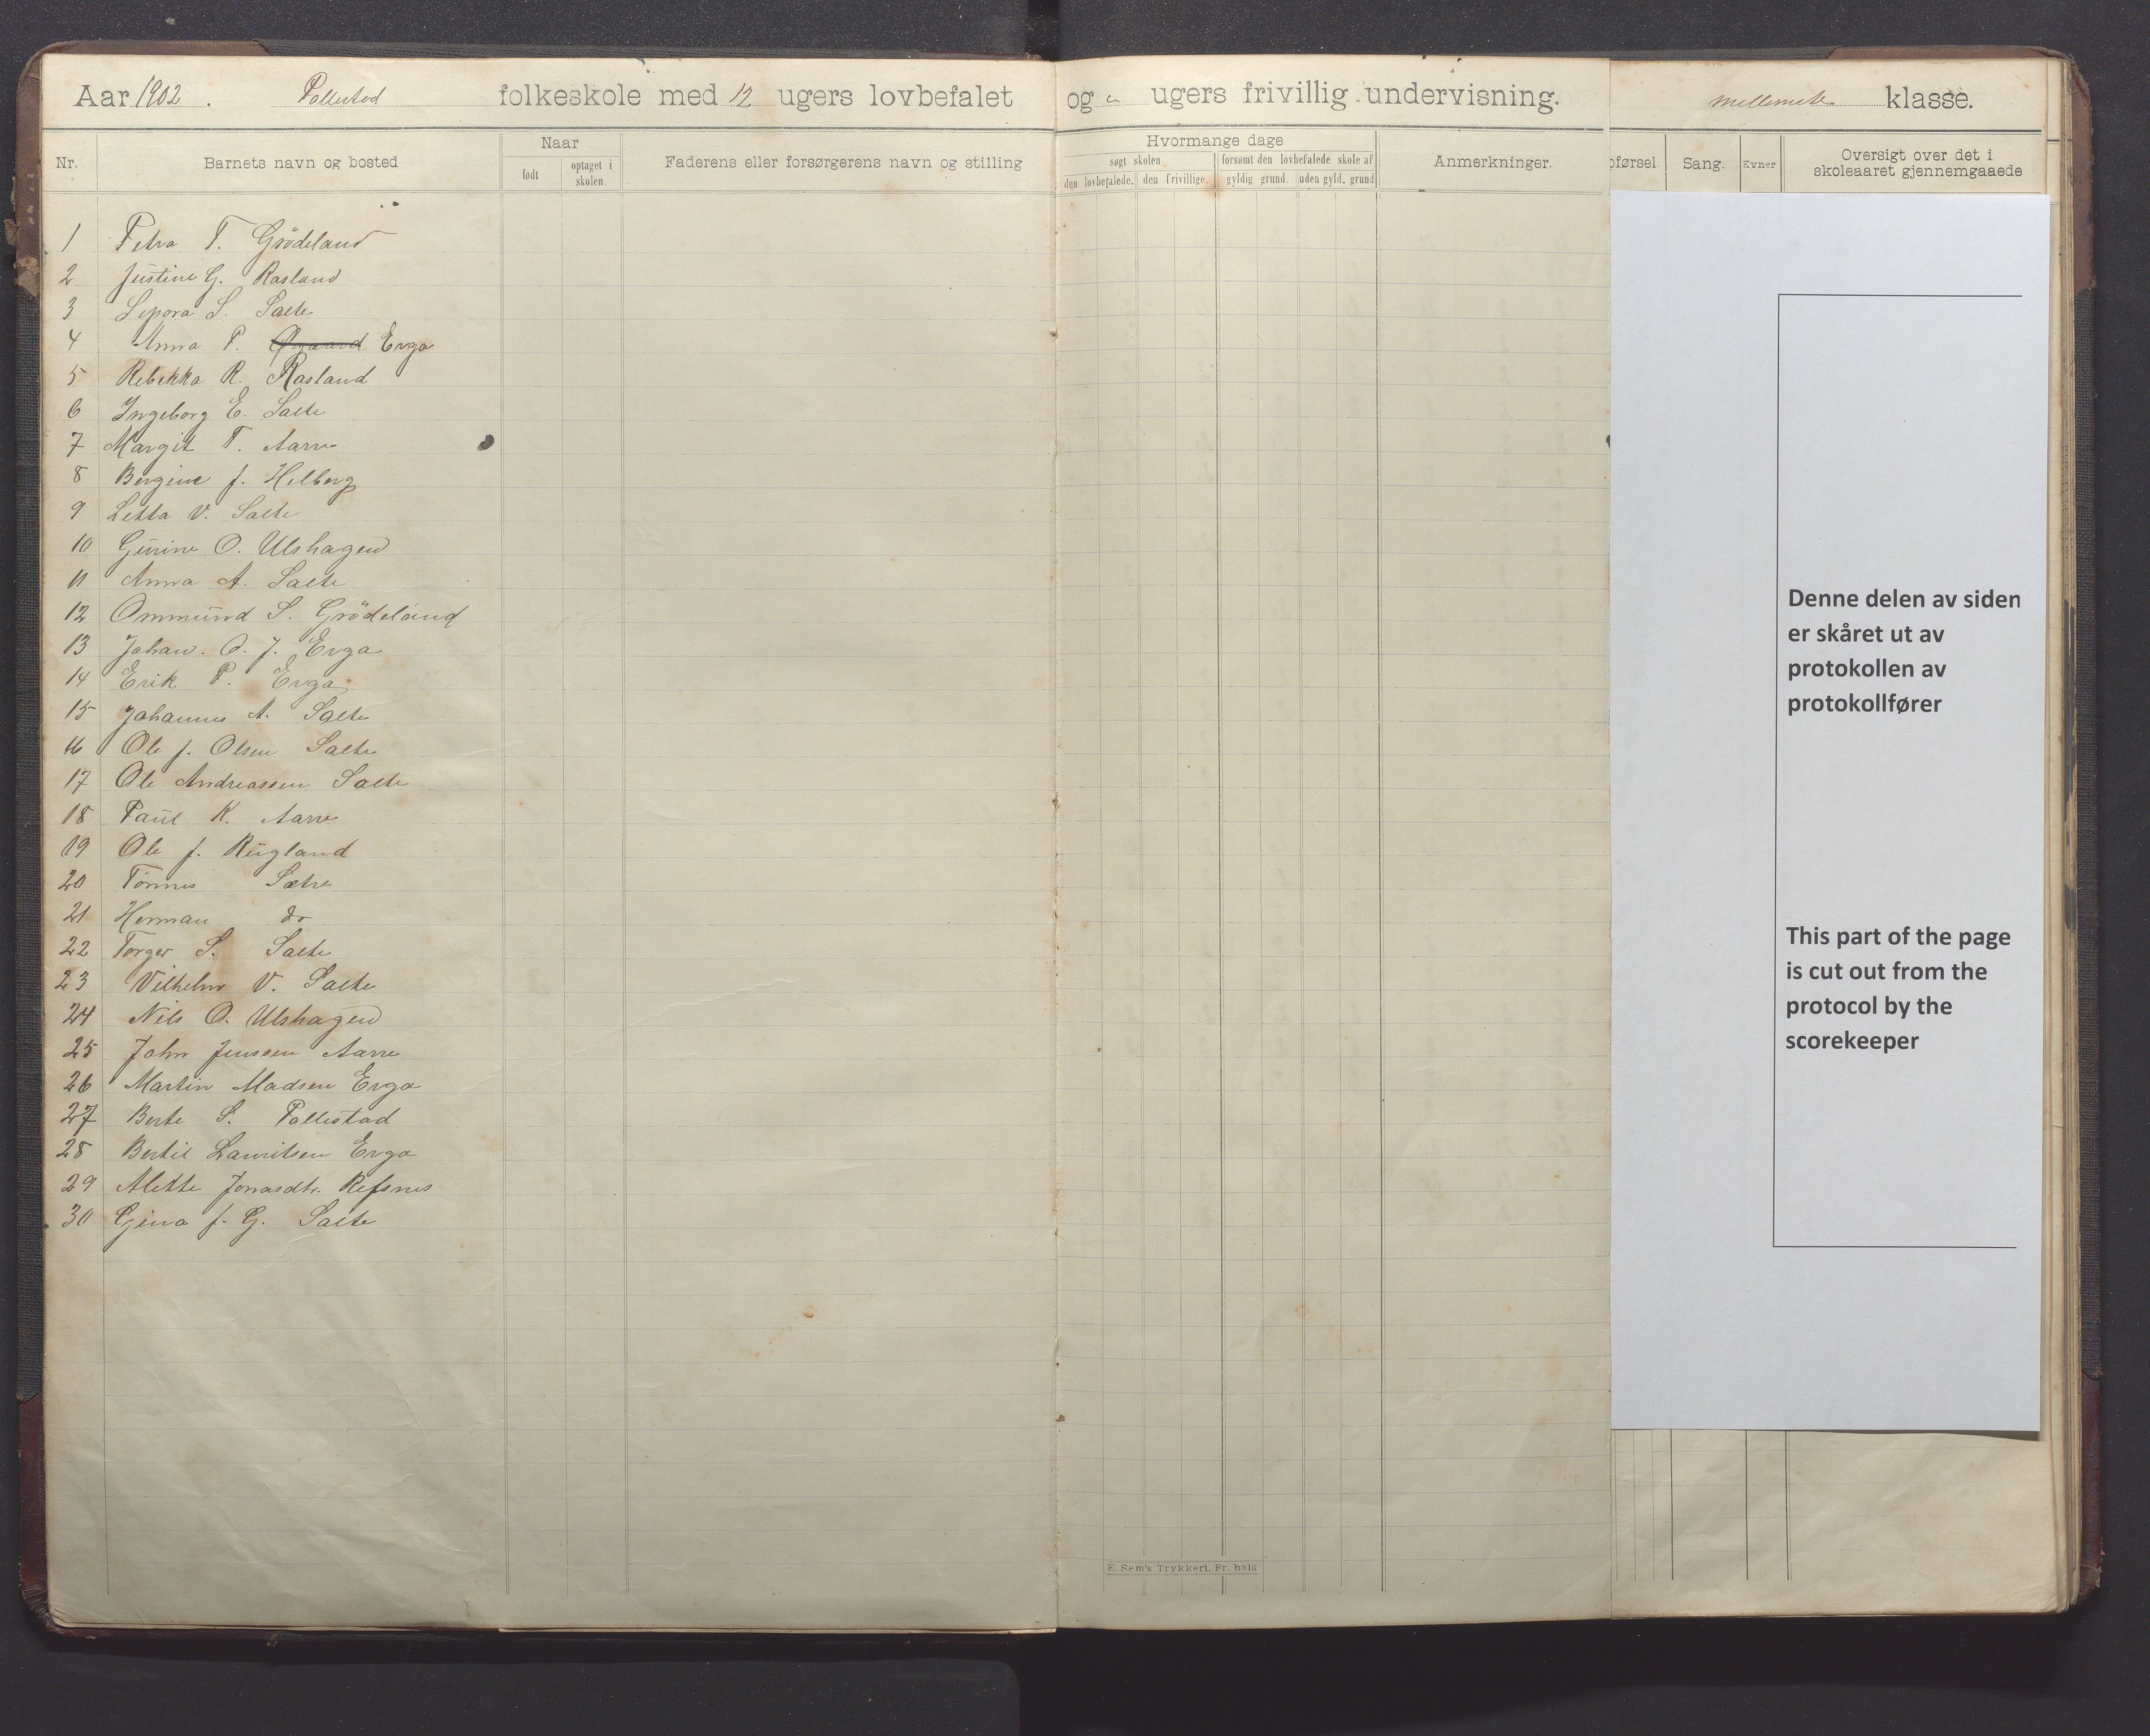 Aar 1902. Pollestad folkeskole med 12 ugers lovbefalet og " ugers frivillig undervisning. mellemste klasse.
Nr. Barnets navn og bosted Naar Faderens eller forsørgerens navn og stilling
født optaget i skolen
Hvormange dage Anmerkninger.
søgt skolen forsømt den lovbefalede skole af
den lovbefalede. den frivillige. gyldig grund. uden gyld. grund
pførsel. Sang. Evner Oversigt over det i
skoleaaret gjennemgaaede
1 Petra T. Grödeland
2 Justine G. Rasland
3 Sepora S. Salte
4 Anna P. Erga
5 Rebekka R. Rasland
6 Ingeborg E. Salte
7 Margit T. Aarre
8 Bergine J. Helberg
9 Letta V. Salte
10 Gurine O. Ulshagen
11 Anna A. Salte
12 Ommund S. Grödeland
13 Johan. O. J. Erga
14 Erik P. Erga
15 Johannes A. Salte
16 Ole J. Olsen Salte
17 Ole Andreassen Salte
18 Paul K. Aarre
19 Ole J. Rugland
20 Tönnes Sætre
21 Herman do
22 Torger S. Salte
23 Vilhelm V. Salte
24 Nils O. Ulshagen
25 John Jenssen Aarre
26 Martin Madsen Erga
27 Berte S. Pollestad
28 Bertil Lauritsen Erga
29 Alette Jonasdtr. Refsnes
30 Gina J. G. Salte
E. Sem's Trykkeri, Fr. hald
Denne delen av siden
er skåret ut av
protokollen av
protokollfører
This part of the page
is cut out from the
protocol by the
scorekeeper